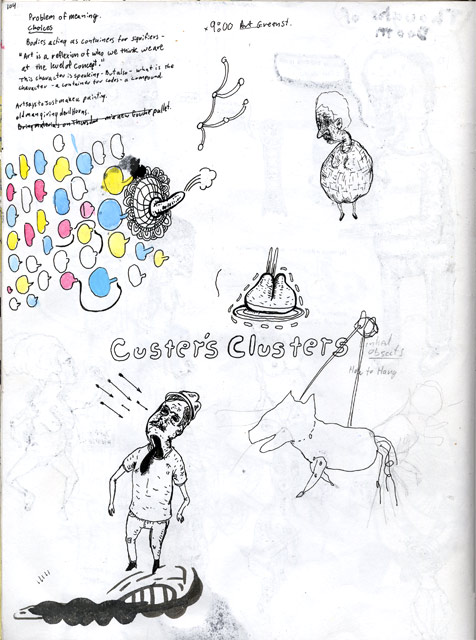 104
Problem of meaning.
choices
Bodies acting as containers for signifiers -
"Art is a reflexion of who we think we are
at the level of concept."
This character is speaking - But also - what is the
character - a container for codes - a compound.
x 9:00 Art Greenst.
Art says to Just make a painting.
old man giving devil Horns.
Custer's Clusters
objects
How to Hang